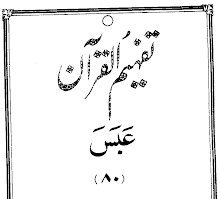 تفہیم القرآن
عَبَسَ
(۸۰)